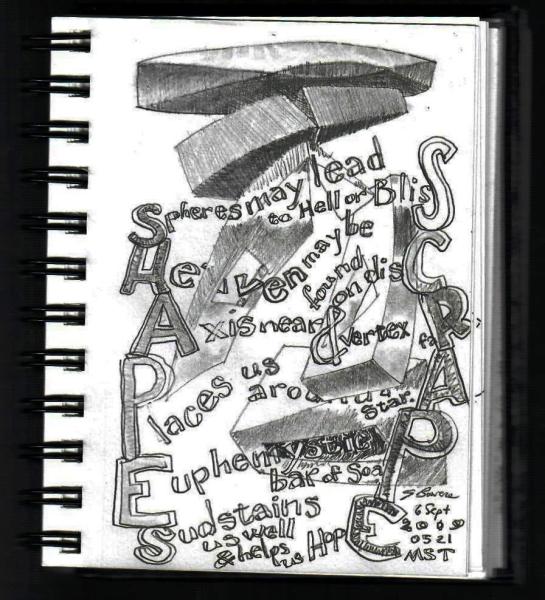 Spheres may lead
to Hell or Bliss
Heaven may be
found on disC
Axis near & vertex faR
Places us
around A
Star
Euphemystic
bar of SoaP
Sudstains
us well
& helps us HopE
6 Sept
2009
0521
MST